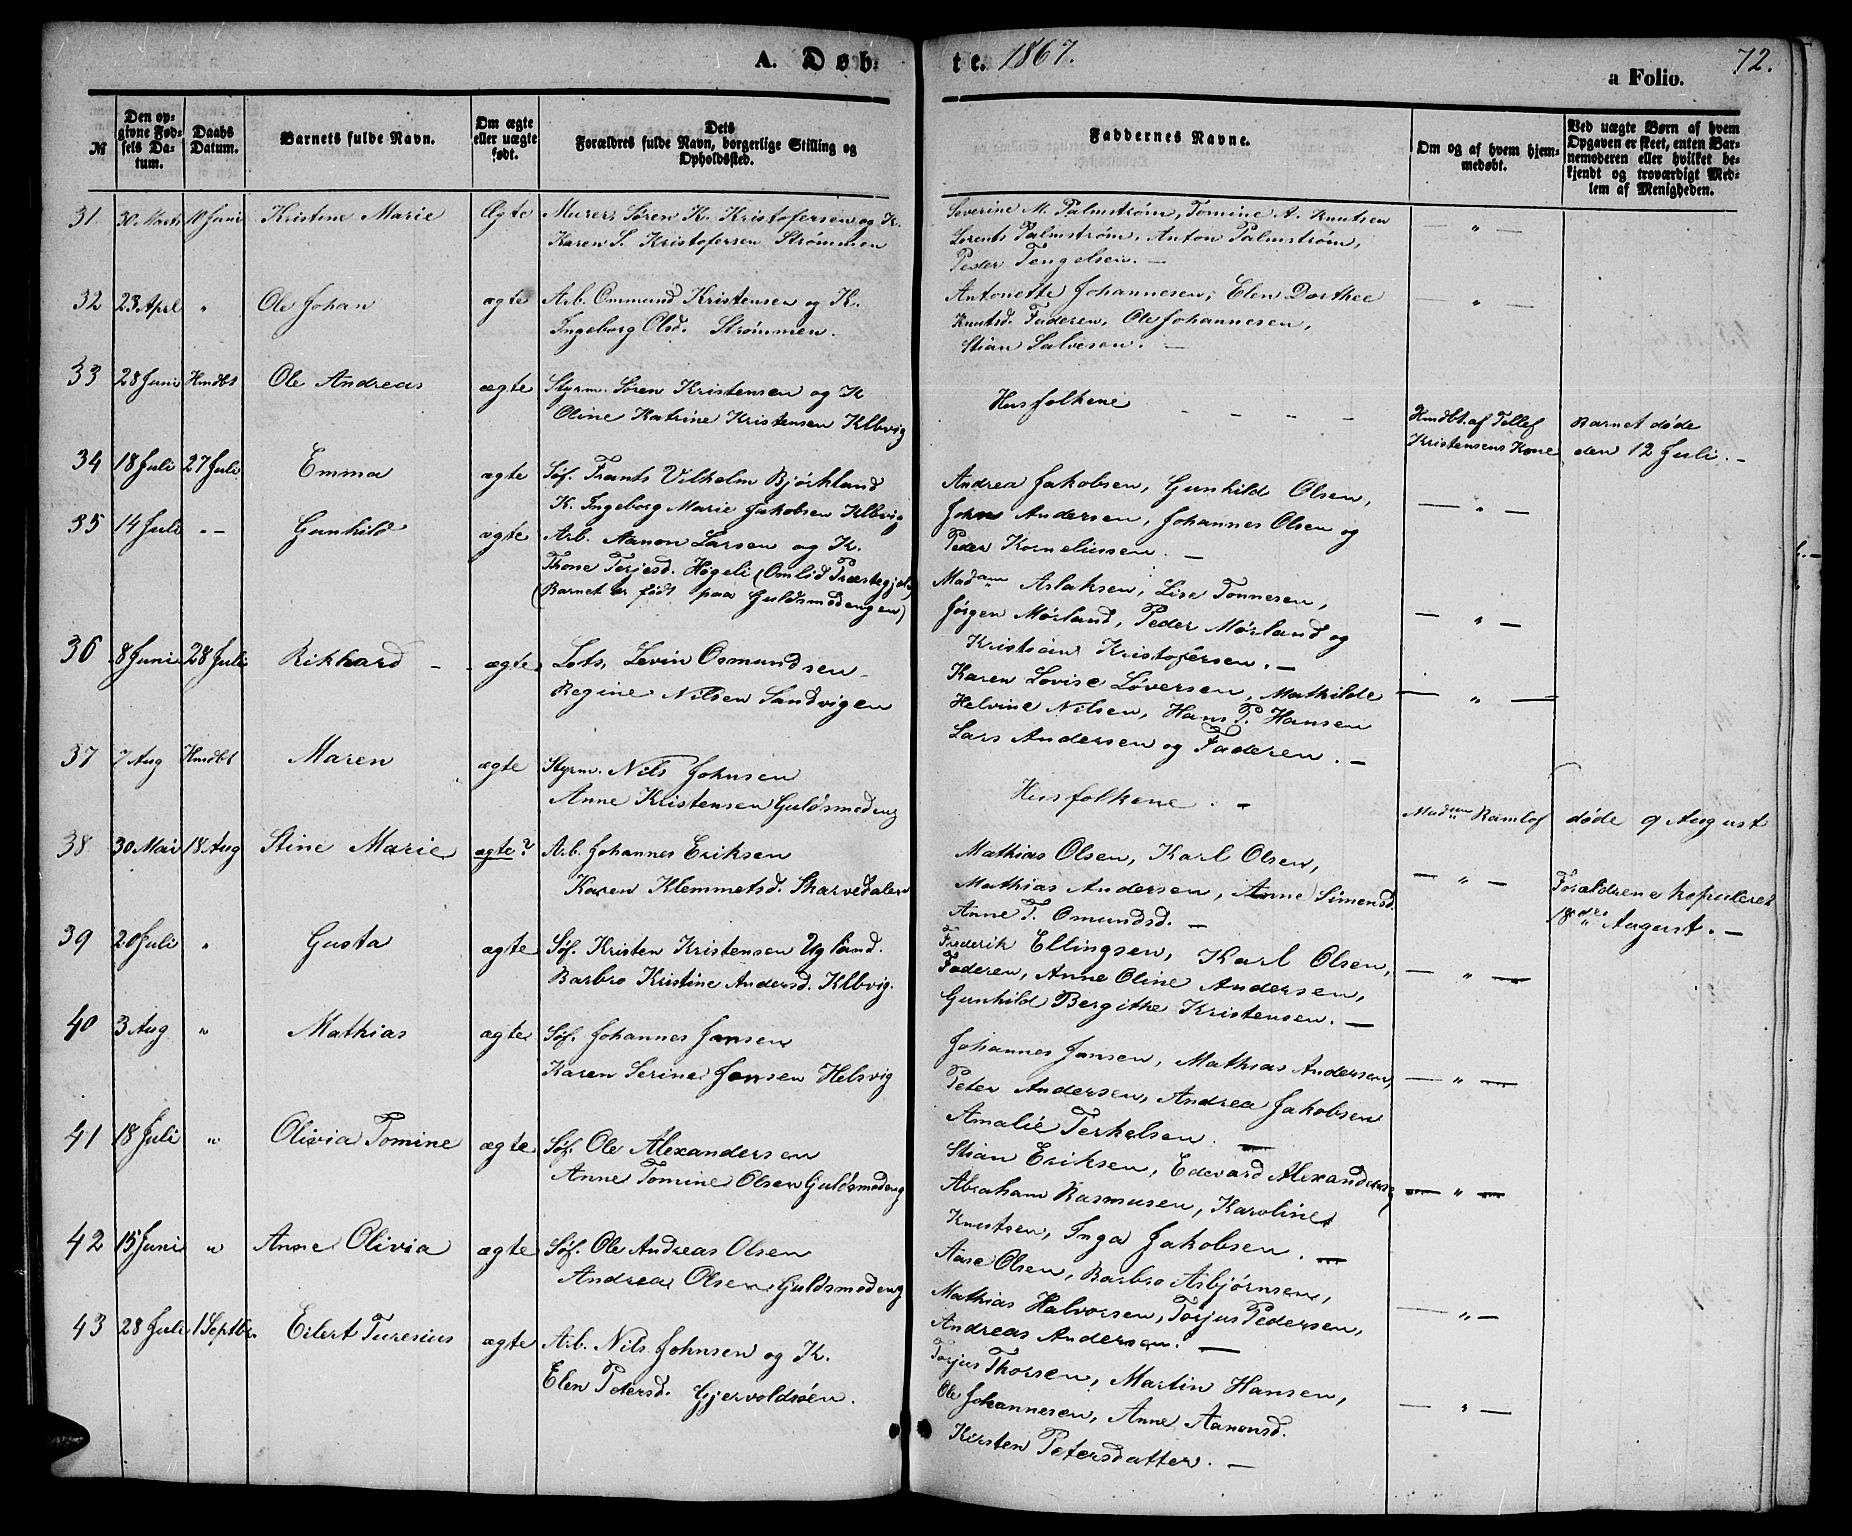 A. Døb-
te. 1867.
72.
a Folio.
№
Den op-
givne Fød-
sels Da-
tum.
Daabs
Datum.
Barnets fulde Navn.
Om ægte
eller uægte
født.
Dets
Forældres fulde Navn, borgerlige Stilling og
Opholdssted.
Faddernes Navne.
Om og af hvem hjem-
medøbt.
Ved uægte Børn af hvem
Opgaven er skeet, enten Bar-
nemoderen eller hvilket be-
kjendt og troværdigt Med-
lem af Menigheden.
31. 30 Marts 10 Juni Kristine Marie Ægte Murer, Søren K. Kristofersen og K.
Karen S. Kristofersen Strømmen
Severine M. Palmstrøm, Tomine A. Knutsen
Lorents Palmstrøm, Anton Palmstrøm,
Peder Tengelsen. —
— " —
32 23 Apl " Ole Johan ægte Arb. Ommund Kristensen og K.
Ingeborg Olsd. Strømmen.
Antonette Johannesen, Elen Dorthee
Knutsd. Faderen, Ole Johannesen,
Stian Salvesen. —
— " —
33 28 Juni Hmdbt Ole Andreas ægte Styrm. Søren Kristensen og K
Oline Katrine Kristensen Klbvig
Husfolkene - - - -
Hmdbt. af Tellef
Kristensens Kone
Barnet døde
den 12 Juli. —
34 18 Juli 27 Juli Emma ægte Søf. Frants Vilhelm Bjørkland
K. Ingeborg Marie Jakobsen Klbvig
Andrea Jakobsen, Gunhild Olsen,
John Andersen, Johannes Olsen og
Peder Korneliussen. —
— " —
35 14 Juli " — Gunhild ægte Arb. Aanon Larsen og K.
Thone Terjesd. Høgeli (Omlid Præstegjeld)
(Barnet er født paa Guldsmedengen)
Madam Aslaksen, Lise Tønnesen,
Jørgen Mørland, Peder Mørland og
Kristian Kristofersen. —
— " —
36 8 Juni 28 Juli Rikhard - - ægte Lots, Levin Osmundsen
Regine Nilsen Sandvigen
Karen Lovise Løversen, Mathilde
Helvine Nilsen, Hans P. Hansen
Lars Andersen og Faderen. —
— " —
37 7 Aug Hmdbt Maren ægte Styrm. Nils Johnsen
Anne Kristensen Guldsmedeng
Husfolkene. —
Madam Ramlef
døde 9 August
38 30 Mai 18 Aug Stine Marie ægte? Arb. Johannes Eriksen
Karen Klemmetsd. Skarvedalen
Mathias Olsen, Karl Olsen,
Mathias Andersen, Anne Simensd.
Anne T. Omundsd. —
— " —
Forældrene kopulerede
18de August. —
39 20 Juli " Gusta ægte Søf. Kristen Kristensen Ugland.
Barbro Kristine Andersd. Klbvig.
Frederik Ellingsen, Karl Olsen,
Faderen, Anne Oline Andersen,
Gunhild Bergithe Kristensen. —
— " —
40 3 Aug " Mathias ægte Søf. Johannes Jansen
Karen Serine Jansen Helsvig
Johannes Jansen, Mathias Andersen,
Peter Andersen, Andrea Jakobsen
Amalie Terkelsen. —
— " —
41 18 Juli " Olivia Tomine ægte Søf. Ole Alexandersen
Anne Tomine Olsen Guldsmedeng
Stian Eriksen, Edevard Alexandersen
Abraham Rasmusen, Karoline
Knutsen, Inga Jakobsen. —
— " —
42 15 Juni " Anne Olivia ægte Søf. Ole Andreas Olsen
Andrea Olsen Guldsmedeng
Aase Olsen, Barbro Asbjørnsen,
Mathias Halvorsen, Torjus Pedersen,
Andreas Andersen. —
— " —
43 28 Juli 1 Septbr. Eilert Turesius ægte Arb. Nils Johnsen og K.
Elen Petersd. Gjervoldsøen.
Torjus Thorsen, Martin Hansen,
Ole Johannesen, Anne Aanonsd.
Kirsten Petersdatter. —
— " —